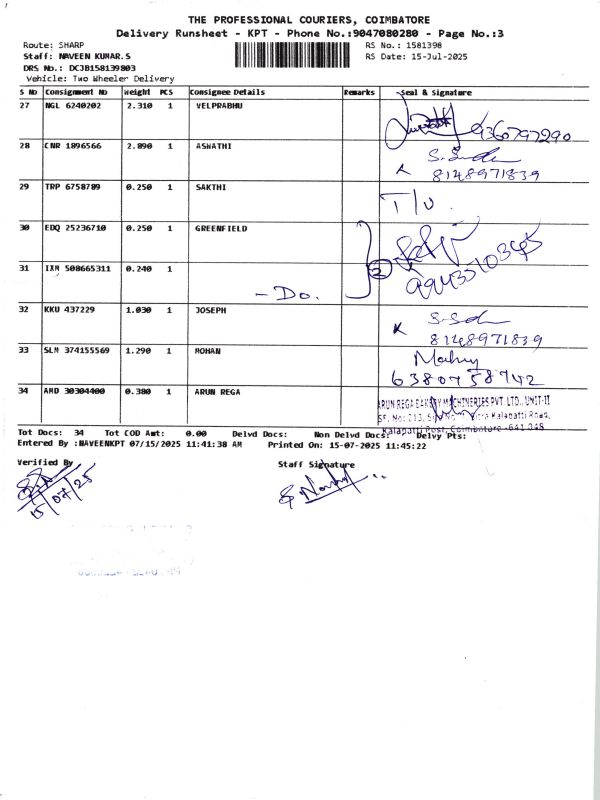 THE PROFESSIONAL COURIERS, COIMBATORE
Delivery Runsheet - KPT - Phone No.:9047080280 - Page No.:3
Route: SHARP RS No.: 1581398
Staff: NAVEEN KUMAR.S RS Date: 15-Jul-2025
DRS No.: DCJB158139803
Vehicle: Two Wheeler Delivery
S No Consignment No Weight PCS Consignee Details Remarks Seal & Signature
27 NGL 6240202 2.310 1 VELPRABHU
9360797290
28 CNR 1896566 2.890 1 ASWATHI
8148971839
29 TRP 6758789 0.250 1 SAKTHI T/U.
30 EDQ 25236710 0.250 1 GREENFIELD
31 IXM 508665311 0.240 1 2 9943510345
- Do.
32 KKU 437229 1.030 1 JOSEPH
8148971839
33 SLM 374155569 1.290 1 MOHAN
6380758742
34 AMD 30304400 0.380 1 ARUN REGA ARUN REGA BAKERY MACHINERIES PVT. LTD., UNIT-II
SF. No: 713, Kalapatti Road,
Kalapatti Post, Coimbatore -641 048
Tot Docs: 34 Tot COD Amt: 0.00 Delvd Docs: Non Delvd Docs: Delvy Pts:
Entered By :NAVEENKPT 07/15/2025 11:41:38 AM Printed On: 15-07-2025 11:45:22
Verified By Staff Signature
15/07/25